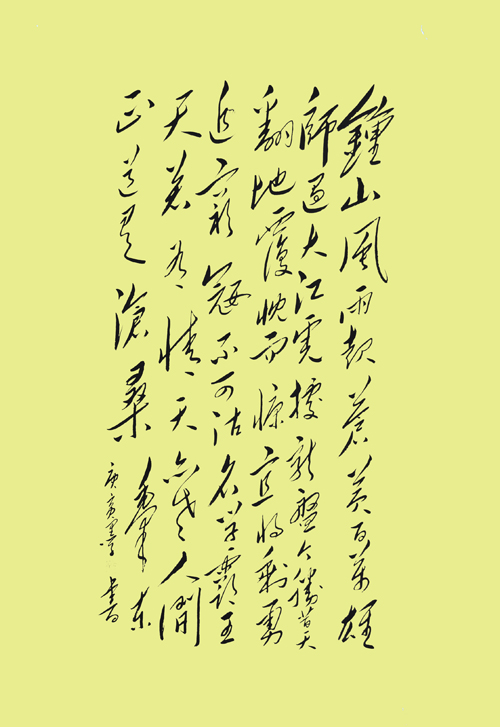 鐘山風雨起蒼黄百萬雄
師過大江虎據龍盤今勝昔天
翻地覆慨而慷宜將剩勇
追窮寇不可沽名學霸王
天若有情天亦老人間
正道是滄桑 毛澤東
庚寅書